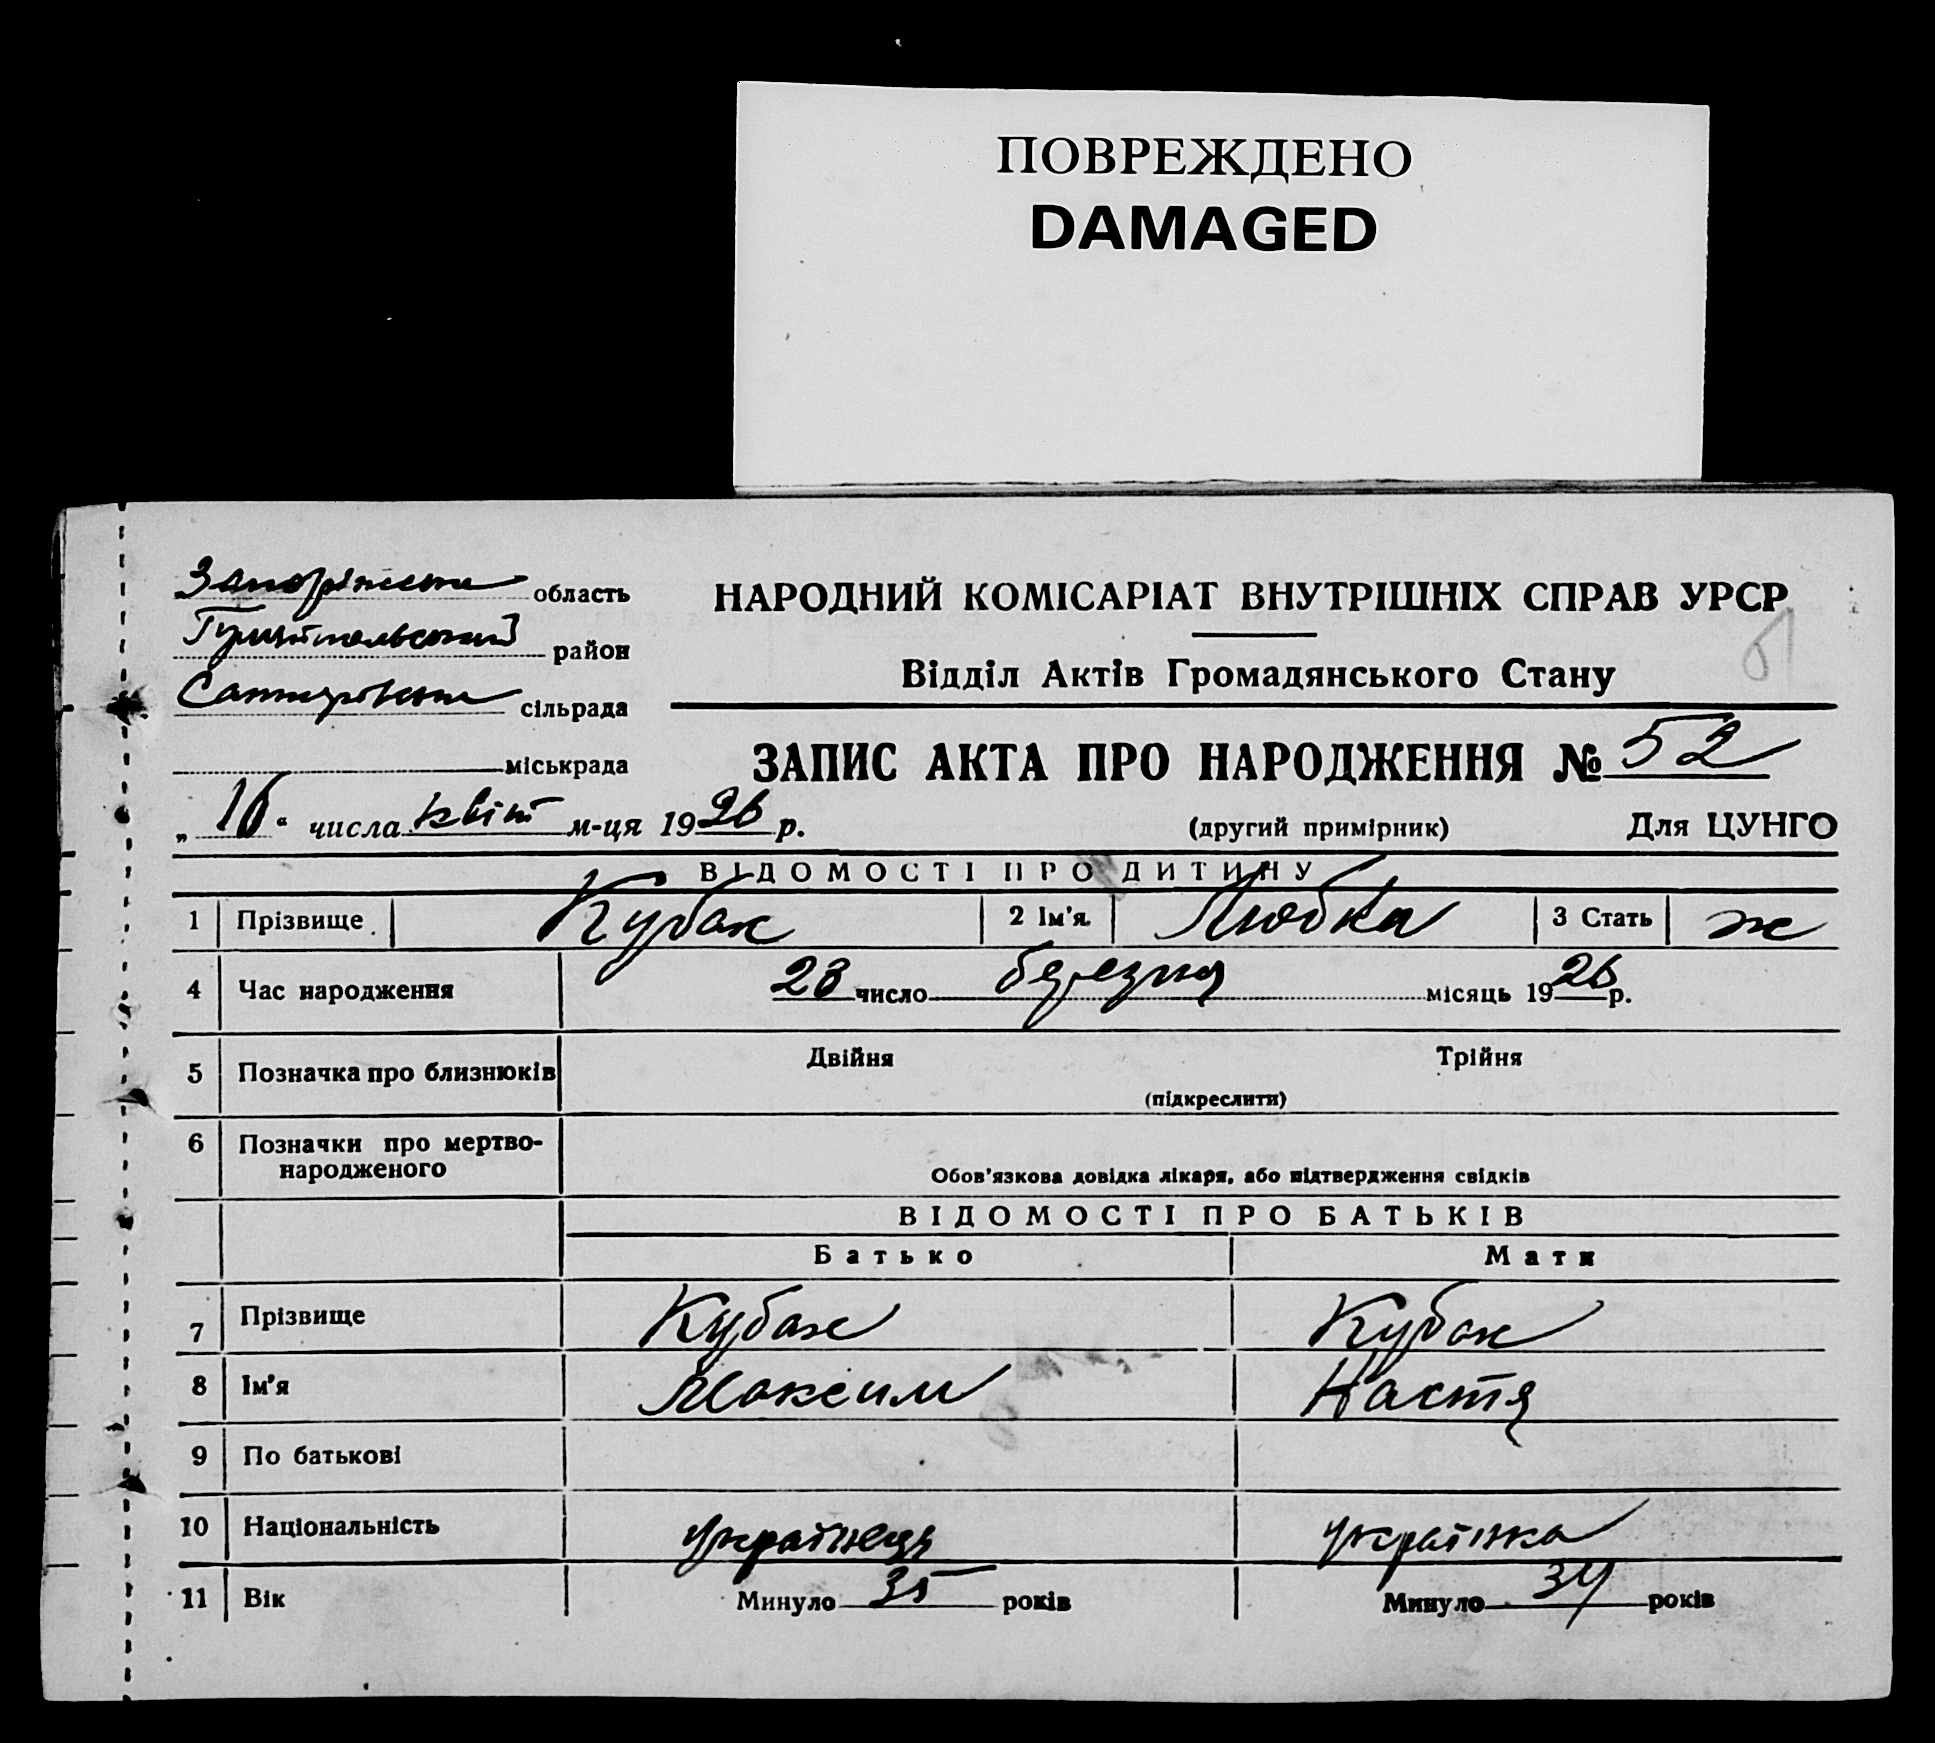 ПОВРЕЖДЕНО
DAMAGED
Запоріжська область
НАРОДНИЙ КОМІСАРІАТ ВНУТРІШНІХ СПРАВ УРСР
район
Відділ Актів Громадянського Стану
сільрада
ЗАПИС АКТА ПРО НАРОДЖЕННЯ № 52
міськрада
„ 16 “ числа квіт м-ця 1926 р.
(другий примірник) Для ЦУНГО
ВІДОМОСТІ ПРО ДИТИНУ
1 Прізвище Кубак 2 Ім'я Любка 3 Стать ж
4 Час народження 28 число березня місяць 1926 р.
5 Позначка про близнюків Двійня Трійня
(підкреслити)
6 Позначки про мертво-
народженого
Обов'язкова довідка лікаря, або підтвердження свідків
ВІДОМОСТІ ПРО БАТЬКІВ
Батько Мати
7 Прізвище Кубак Кубак
8 Ім'я Максим Настя
9 По батькові
10 Національність українець українка
11 Вік Минуло 35 років Минуло 34 років